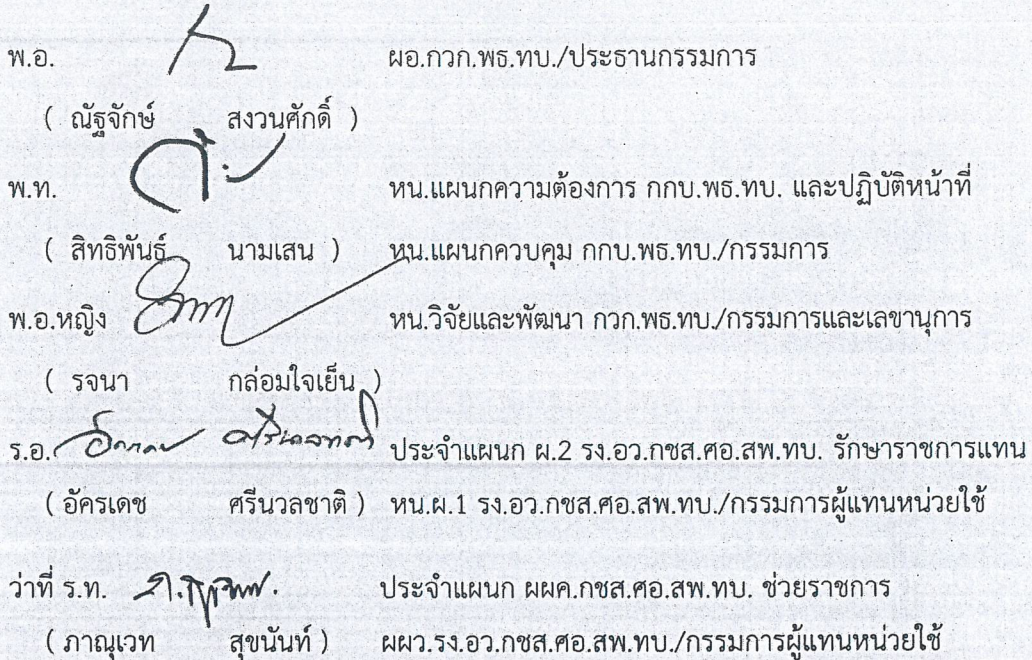 พ.อ. ผอ.กวก.พธ.ทบ./ประธานกรรมการ
( ณัฐจักษ์ สงวนศักดิ์ )
พ.ท. หน.แผนกความต้องการ กกบ.พธ.ทบ. และปฏิบัติหน้าที่
( สิทธิพันธุ์ นามเสน ) หน.แผนกควบคุม กกบ.พธ.ทบ./กรรมการ
พ.อ.หญิง หน.วิจัยและพัฒนา กวก.พธ.ทบ./กรรมการและเลขานุการ
( รจนา กล่อมใจเย็น )
ร.อ. ประจำแผนก ผ.2 รง.อว.กชส.ศอ.สพ.ทบ. รักษาราชการแทน
( อัครเดช ศรีนวลชาติ ) หน.ผ.1 รง.อว.กชส.ศอ.สพ.ทบ./กรรมการผู้แทนหน่วยใช้
ว่าที่ ร.ท. ประจำแผนก ผผค.กชส.ศอ.สพ.ทบ. ช่วยราชการ
( ภาณุเวท สุขนันท์ ) ผผว.รง.อว.กชส.ศอ.สพ.ทบ./กรรมการผู้แทนหน่วยใช้